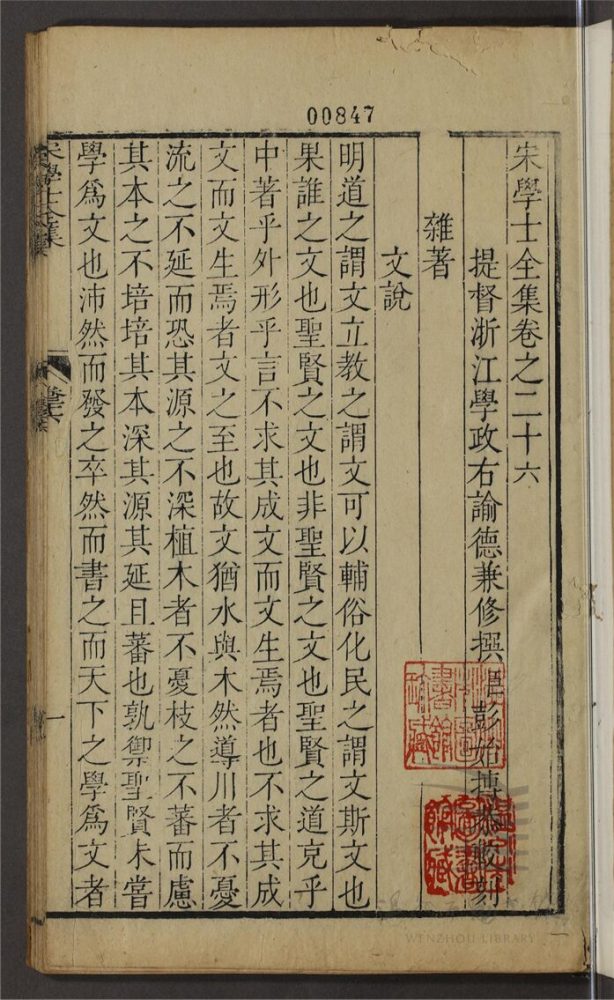 00847
宋學士全集卷之二十六
提督浙江學政右諭德兼修撰
彭始摶
校刻
雜著
文說
明道之謂文立教之謂文可以輔俗化民之謂文斯文也
果誰之文也聖賢之文也非聖賢之文也聖賢之道克乎
中著乎外形乎言不求其成文而文生焉者也不求其成
文而文生焉者文之至也故文猶水與木然導川者不憂
流之不延而恐其源之不深植木者不憂枝之不蕃而慮
其本之不培培其本深其源其延且蕃也孰禦聖賢未嘗
學爲文也沛然而發之卒然而書之而天下之學爲文者
宋學士全集
一
WENZHOU LIBRARY